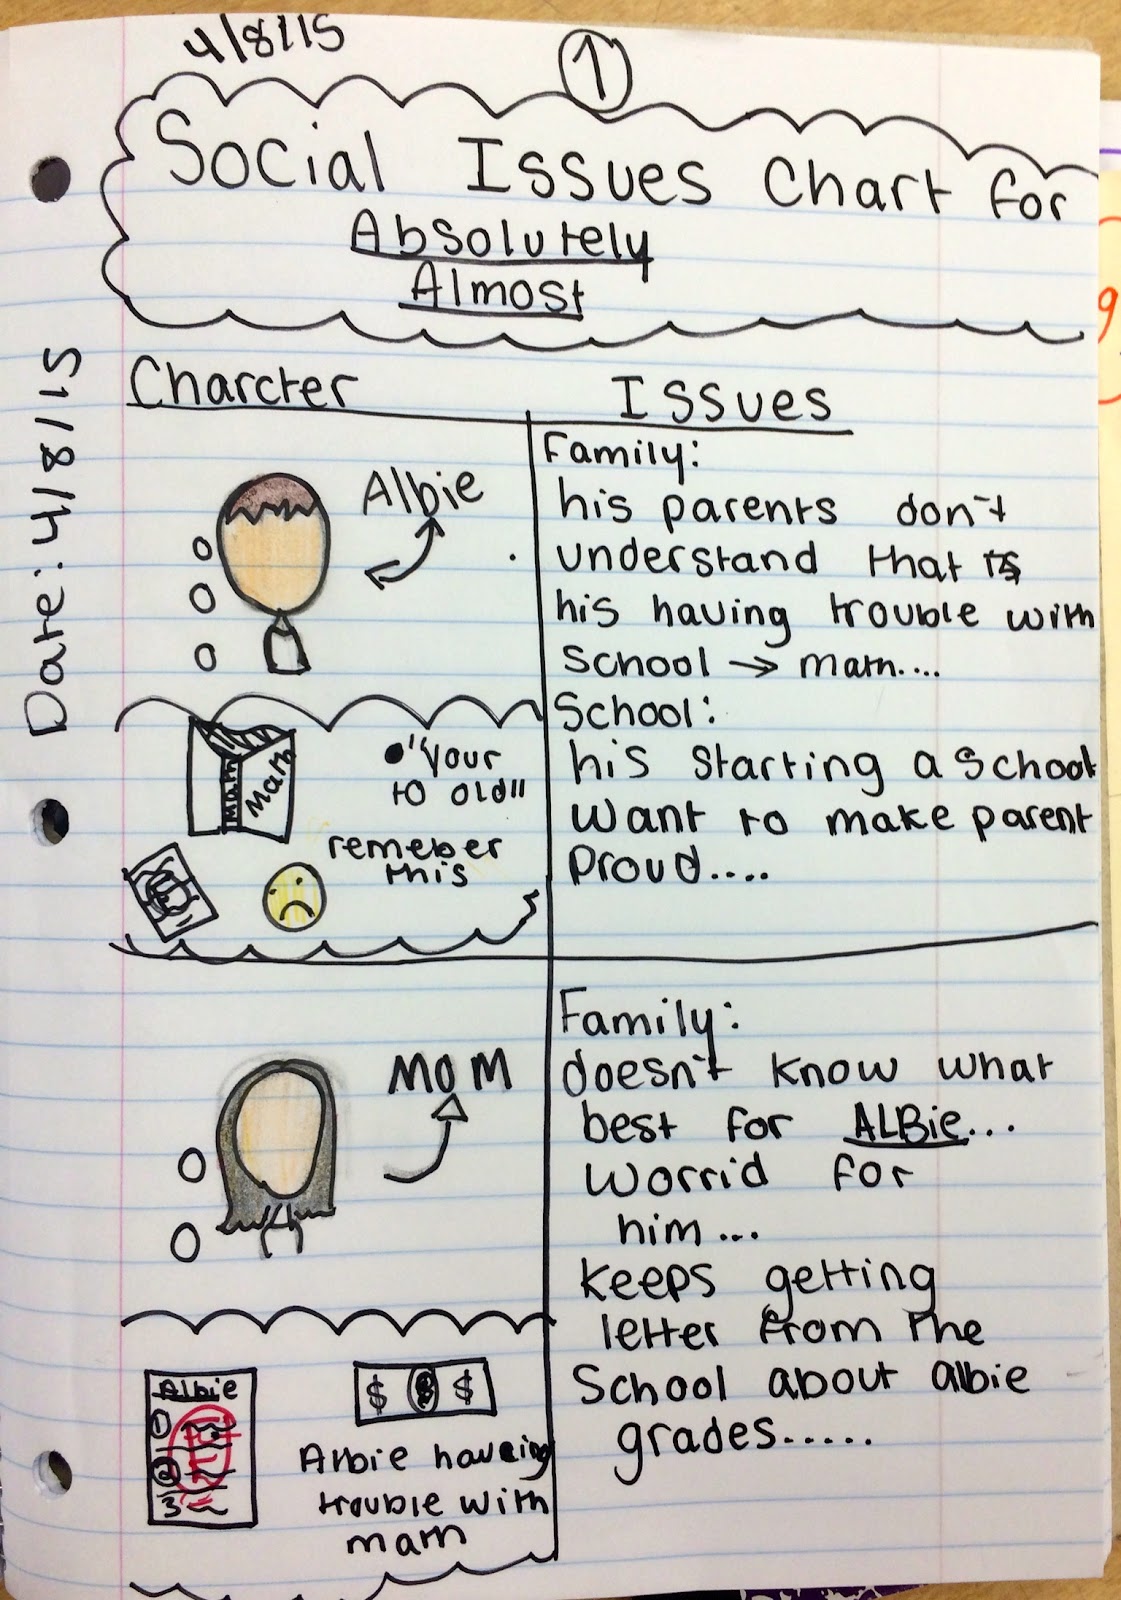 4/8/15
1
Social Issues Chart for
Absolutely
Almost
Date: 4/8/15
Charcter
Issues
Albie
Family:
his parents don't
understand that
his having trouble with
School → math....
School:
his starting a school
want to make parent
proud....
Math
Math
"Your
to old"
remeber
this
MOM
Family:
doesn't know what
best for ALBie...
worrid for
him...
keeps getting
letter from the
School about albie
grades.....
Albie
1
2
3
$ $ $
Albie having
trouble with
math
9